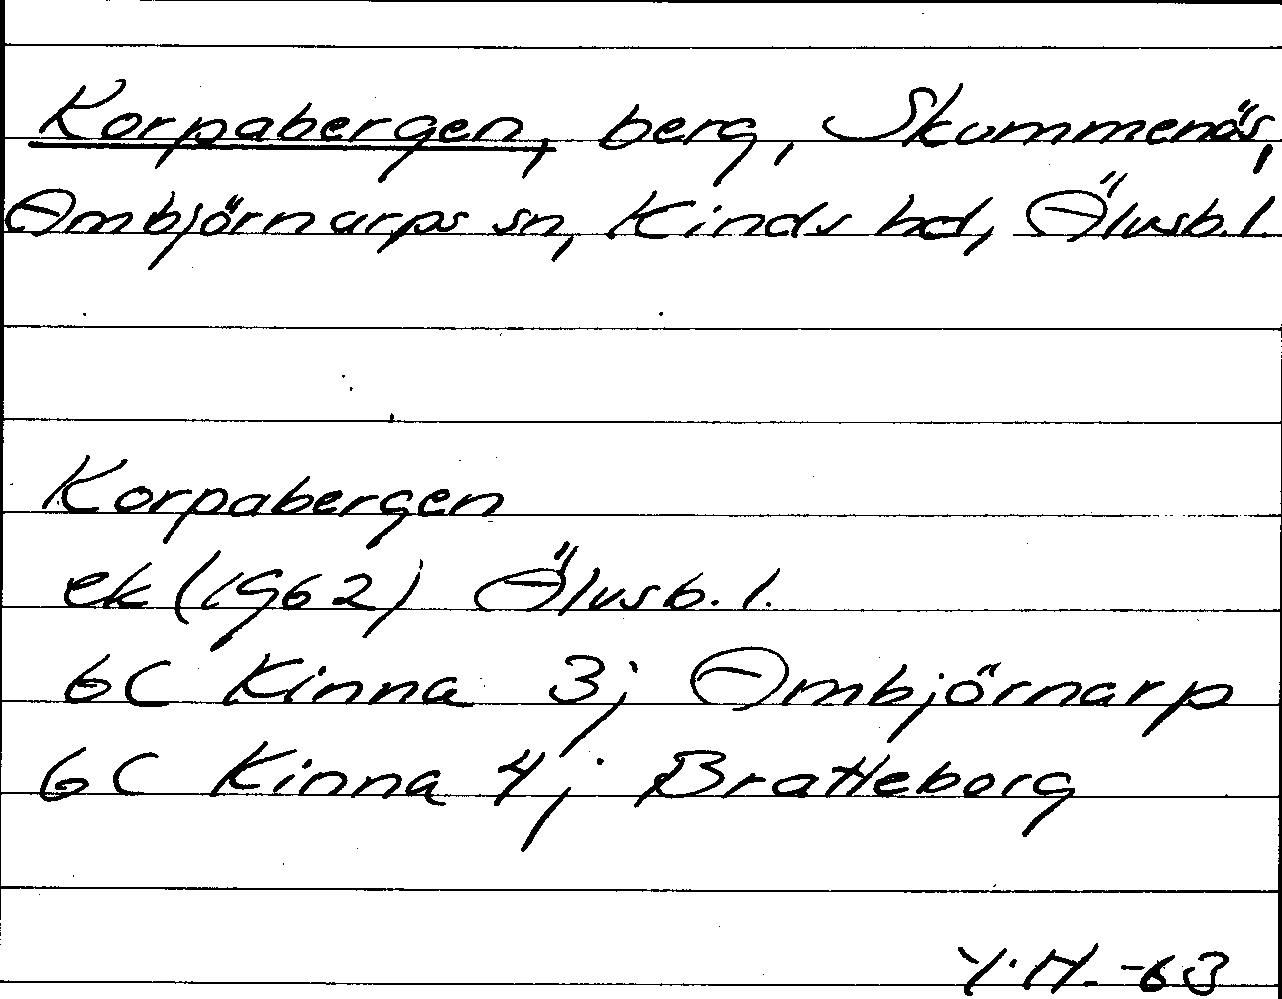 Korpabergen, berg, Skummenäs,
Ambjörnarps sn, Kinds hd, Älvsb. l.
Korpabergen
ek (1962) Älvsb. l.
6C Kinna 3j Ambjörnarp
6C Kinna 4j Bratteborg
Y.H. -63